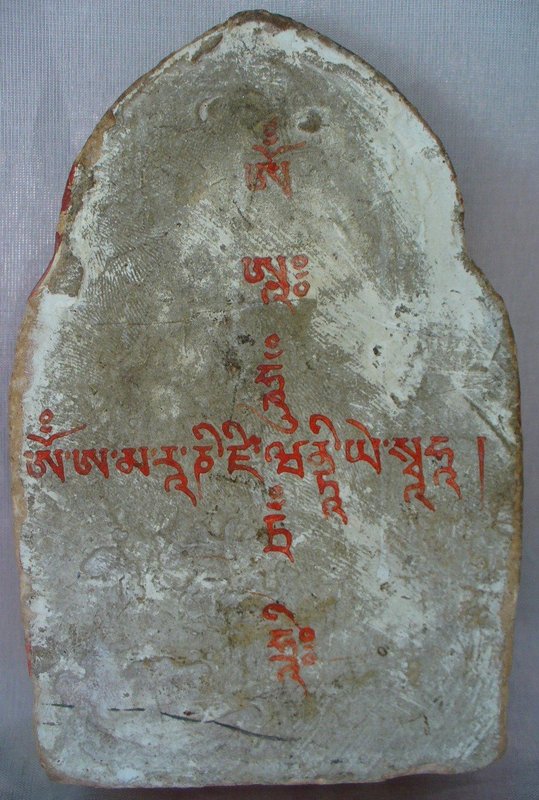 ཨོཾ
ཨཱཿ
ཨོཾ་ཨ་མ་རཱ་ཎི་ཛི་ཝནྟི་ཡེ་སྭཱ་ཧཱ།